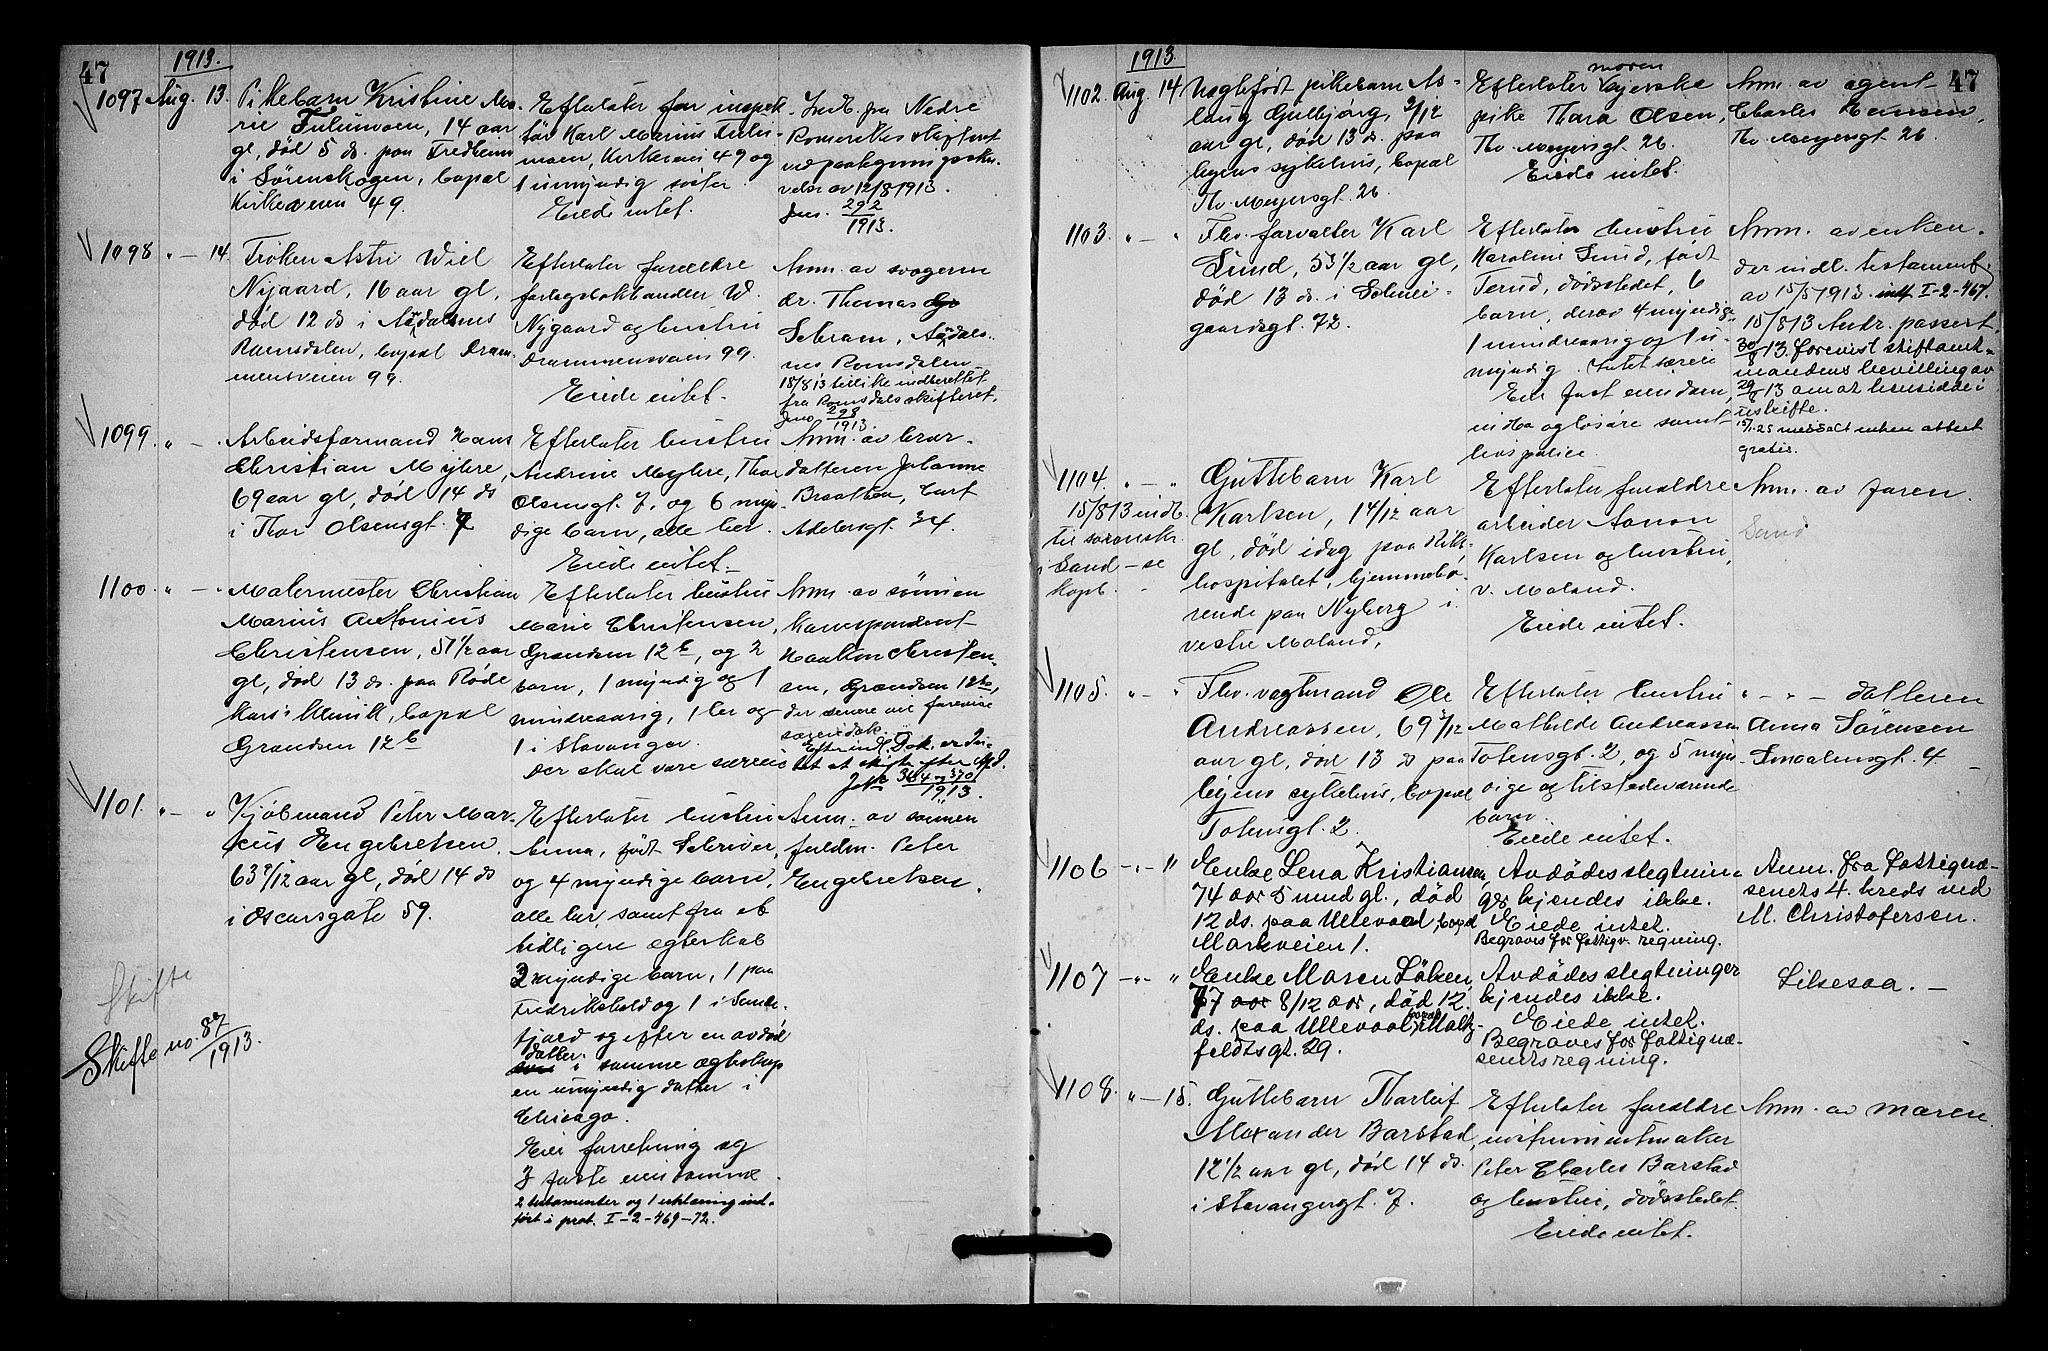 47
1913.
1097 Aug. 13. Pikebarn Kristine Ma-
rie Fulumoen, 14 aar
gl, død 5 ds. paa Fredheim
i Sörenskogen, bopæl
Kirkeveien 49.
Efterlater far inspek-
tør Karl Marius Fulu-
moen, Kirkeveien 49 og
1 umyndig søster.
Eiede intet.
Indb. fra Nedre
Romerikes skifteret
ved paategningsskri-
velse av 12/8 1913.
Jno. 292/1913.
1098 " — 14. Frøken Astri Wiel
Nygaard, 16 aar gl,
død 12 ds i Aandalsnes
Romsdalen, bopæl Dram-
mensveien 99.
Efterlater forældre
forlagsbokhandler W.
Nygaard og hustru
Drammensveien 99.
Eiede intet.
Anm. av svogeren
dr. Thomas
Schram, Aandals-
nes Romsdalen
15/8 13 tillike indberettet
fra Romsdals skifteret.
Jno 298/1913.
1099. " — . Arbeidsformand Hans
Christian Myhre,
69 aar gl, død 14 ds
i Thor Olsensgt. 7
Efterlater hustru
Andrine Myhre, Thor
Olsensgt. 7, og 6 myn-
dige barn, alle her.
Eiede intet.
Anm. av bror-
datteren Johanne
Braathen, Curt
Adelersgt. 34.
1100. " — . Malermester Christian
Marius Antonius
Christensen, 51 1/2 aar
gl, død 13 ds. paa Røde
Kors's klinik, bopæl
Grændsen 12 b
Efterlater hustru
Marie Christensen,
Grændsen 12 b, og 2
barn, 1 myndig og 1
mindreaarig, 1 her og
1 i Stavanger.
Der skal være særeie
Anm. av sønnen
korrespondent
Haakon Christen-
sen, Grændsen 12 b,
der senere vil forevise
særeiedok.
Efter indl. Dok. er In-
tet at skifte efter Afd.
Jno 364 og 370/1913.
1101. " — " Kjøbmand Peter Mar-
cus Engebretsen,
63 9/12 aar gl, død 14 ds
i Oscarsgate 59.
Efterlater hustru
Anna, født Schriver,
og 4 myndige barn,
alle her, samt fra et
tidligere egteskab
2 myndige barn, 1 paa
Fredrikshald og 1 i Sande-
fjord og efter en avdød
datter i samme egteskap
en umyndig datter i
Chicago.
Eier forretning og
3 faste eiendomme.
2 testamenter og 1 erklæring ind-
ført i prot. I-2-469-72.
Anm. av sønnen
fuldm. Peter
Engebretsen.
Skifte
Skifte no. 87/1913.
47
1913.
1102. Aug. 14 Uegtefødt pikebarn As-
laug Gulbjørg, 3/12
aar gl, død 13 ds. paa
byens sykehus, bopæl
Th. Meyersgt. 26.
Efterlater moren syerske
pike Thora Olsen,
Th. Meyersgt 26.
Eiede intet.
Anm. av agent
Charles Hansen,
Th. Meyersgt 26.
1103. " — " Fhv. forvalter Karl
Lund, 53 1/2 aar gl,
død 13 ds. i Schwei-
gaardsgt. 72.
Efterlater hustru
Karoline Lund, født
Terud, dødsstedet, 6
barn, derav 4 myndige
1 mindreaarig og 1 u-
myndig. Intet særeie
Eier fast eiendom,
indbo og løsøre samt
livspolice.
Anm. av enken.
der indl. testament
av 15/5 1913. indf. I-2-467.
15/8 13 Andr. passert
30/8 13. forevist skifteamt-
mandens bevilling av
29/8 13 om at hensidde i
uskifte.
15/1-25 meddelt enken attest
gratis.
1104. " — " Guttebarn Karl
Karlsen, 1 4/12 aar
gl, død idag paa Riks-
hospitalet, hjemmehø-
rende paa Nyberg i
vestre Moland.
15/8 13 indb.
til sorenskr.
i Sand — se
kopb.
Efterlater forældre
arbeider Aanon
Karlsen og hustru,
v. Moland.
Eiede intet.
Anm. av faren.
Sand
1105. " — " Fhv. vogtmand Ole
Andreassen, 69 5/12
aar gl, død 13 ds paa
byens sykehus, bopæl
Totensgt. 2.
Efterlater hustru
Mathilde Andreassen
Totensgt. 2, og 5 myn-
dige og tilstedeværende
barn.
Eiede intet.
" — " — datteren
Anna Sørensen
Smaalensgt. 4.
1106 — " — " Enke Lena Kristiansen,
74 aar 5 mnd gl., død
12 ds. paa Ullevaal, bopæl
Markveien 1.
Avdødes slegtnin-
ger kjendes ikke.
Eiede intet.
Begraves for fattigv. regning.
Anm. fra fattigvæ-
senets 4. kreds ved
M. Christofersen.
1107 — " — " Enke Maren Løken,
77 8/12 aar, død 12.
ds. paa Ullevaal, bopæl Maltz-
feldtsgt. 29.
Avdødes slegtninger
kjendes ikke.
Eiede intet.
Begraves for fattigvæ-
senets regning.
Likesaa. —
1108. " — 15. Guttebarn Thorleif
Alexander Barstad,
12 1/2 aar gl, død 14 ds.
i Stavangergt. 7.
Efterlater forældre
instrumentmaker
Peter Charles Barstad
og hustru, dødsstedet.
Eiede intet.
Anm. av moren.